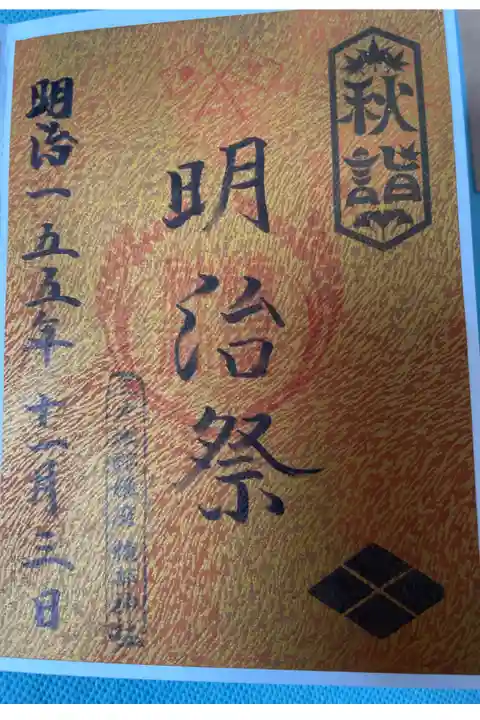 秋詣
明治祭
明治一五五年十一月三日